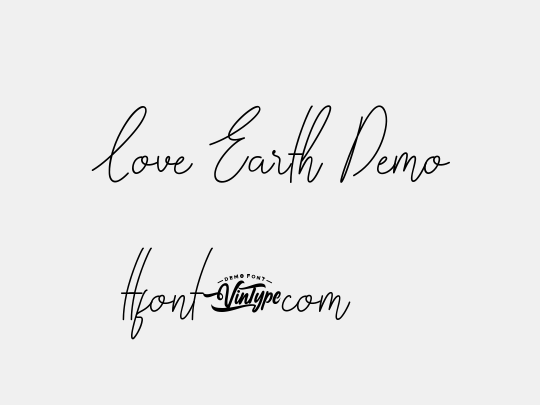 Love Earth Demo
DEMO FONT
ttfont Vintype com